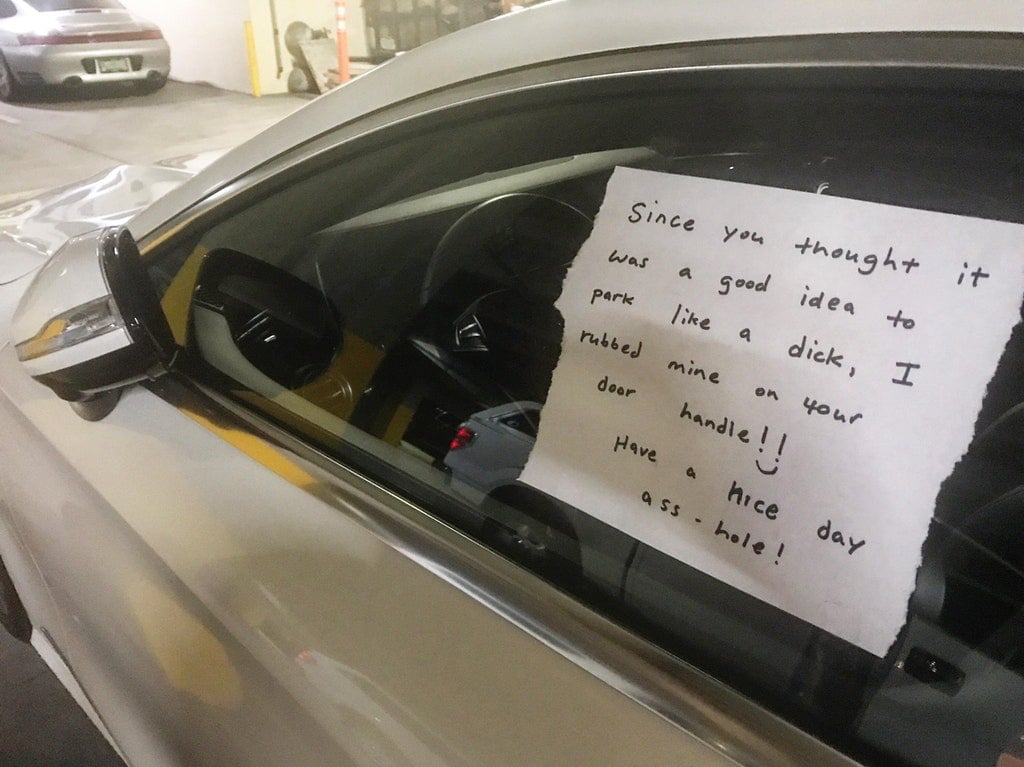 Since you thought it
was a good idea to
park like a dick, I
rubbed mine on your
door handle!!
Have a nice day
ass-hole!